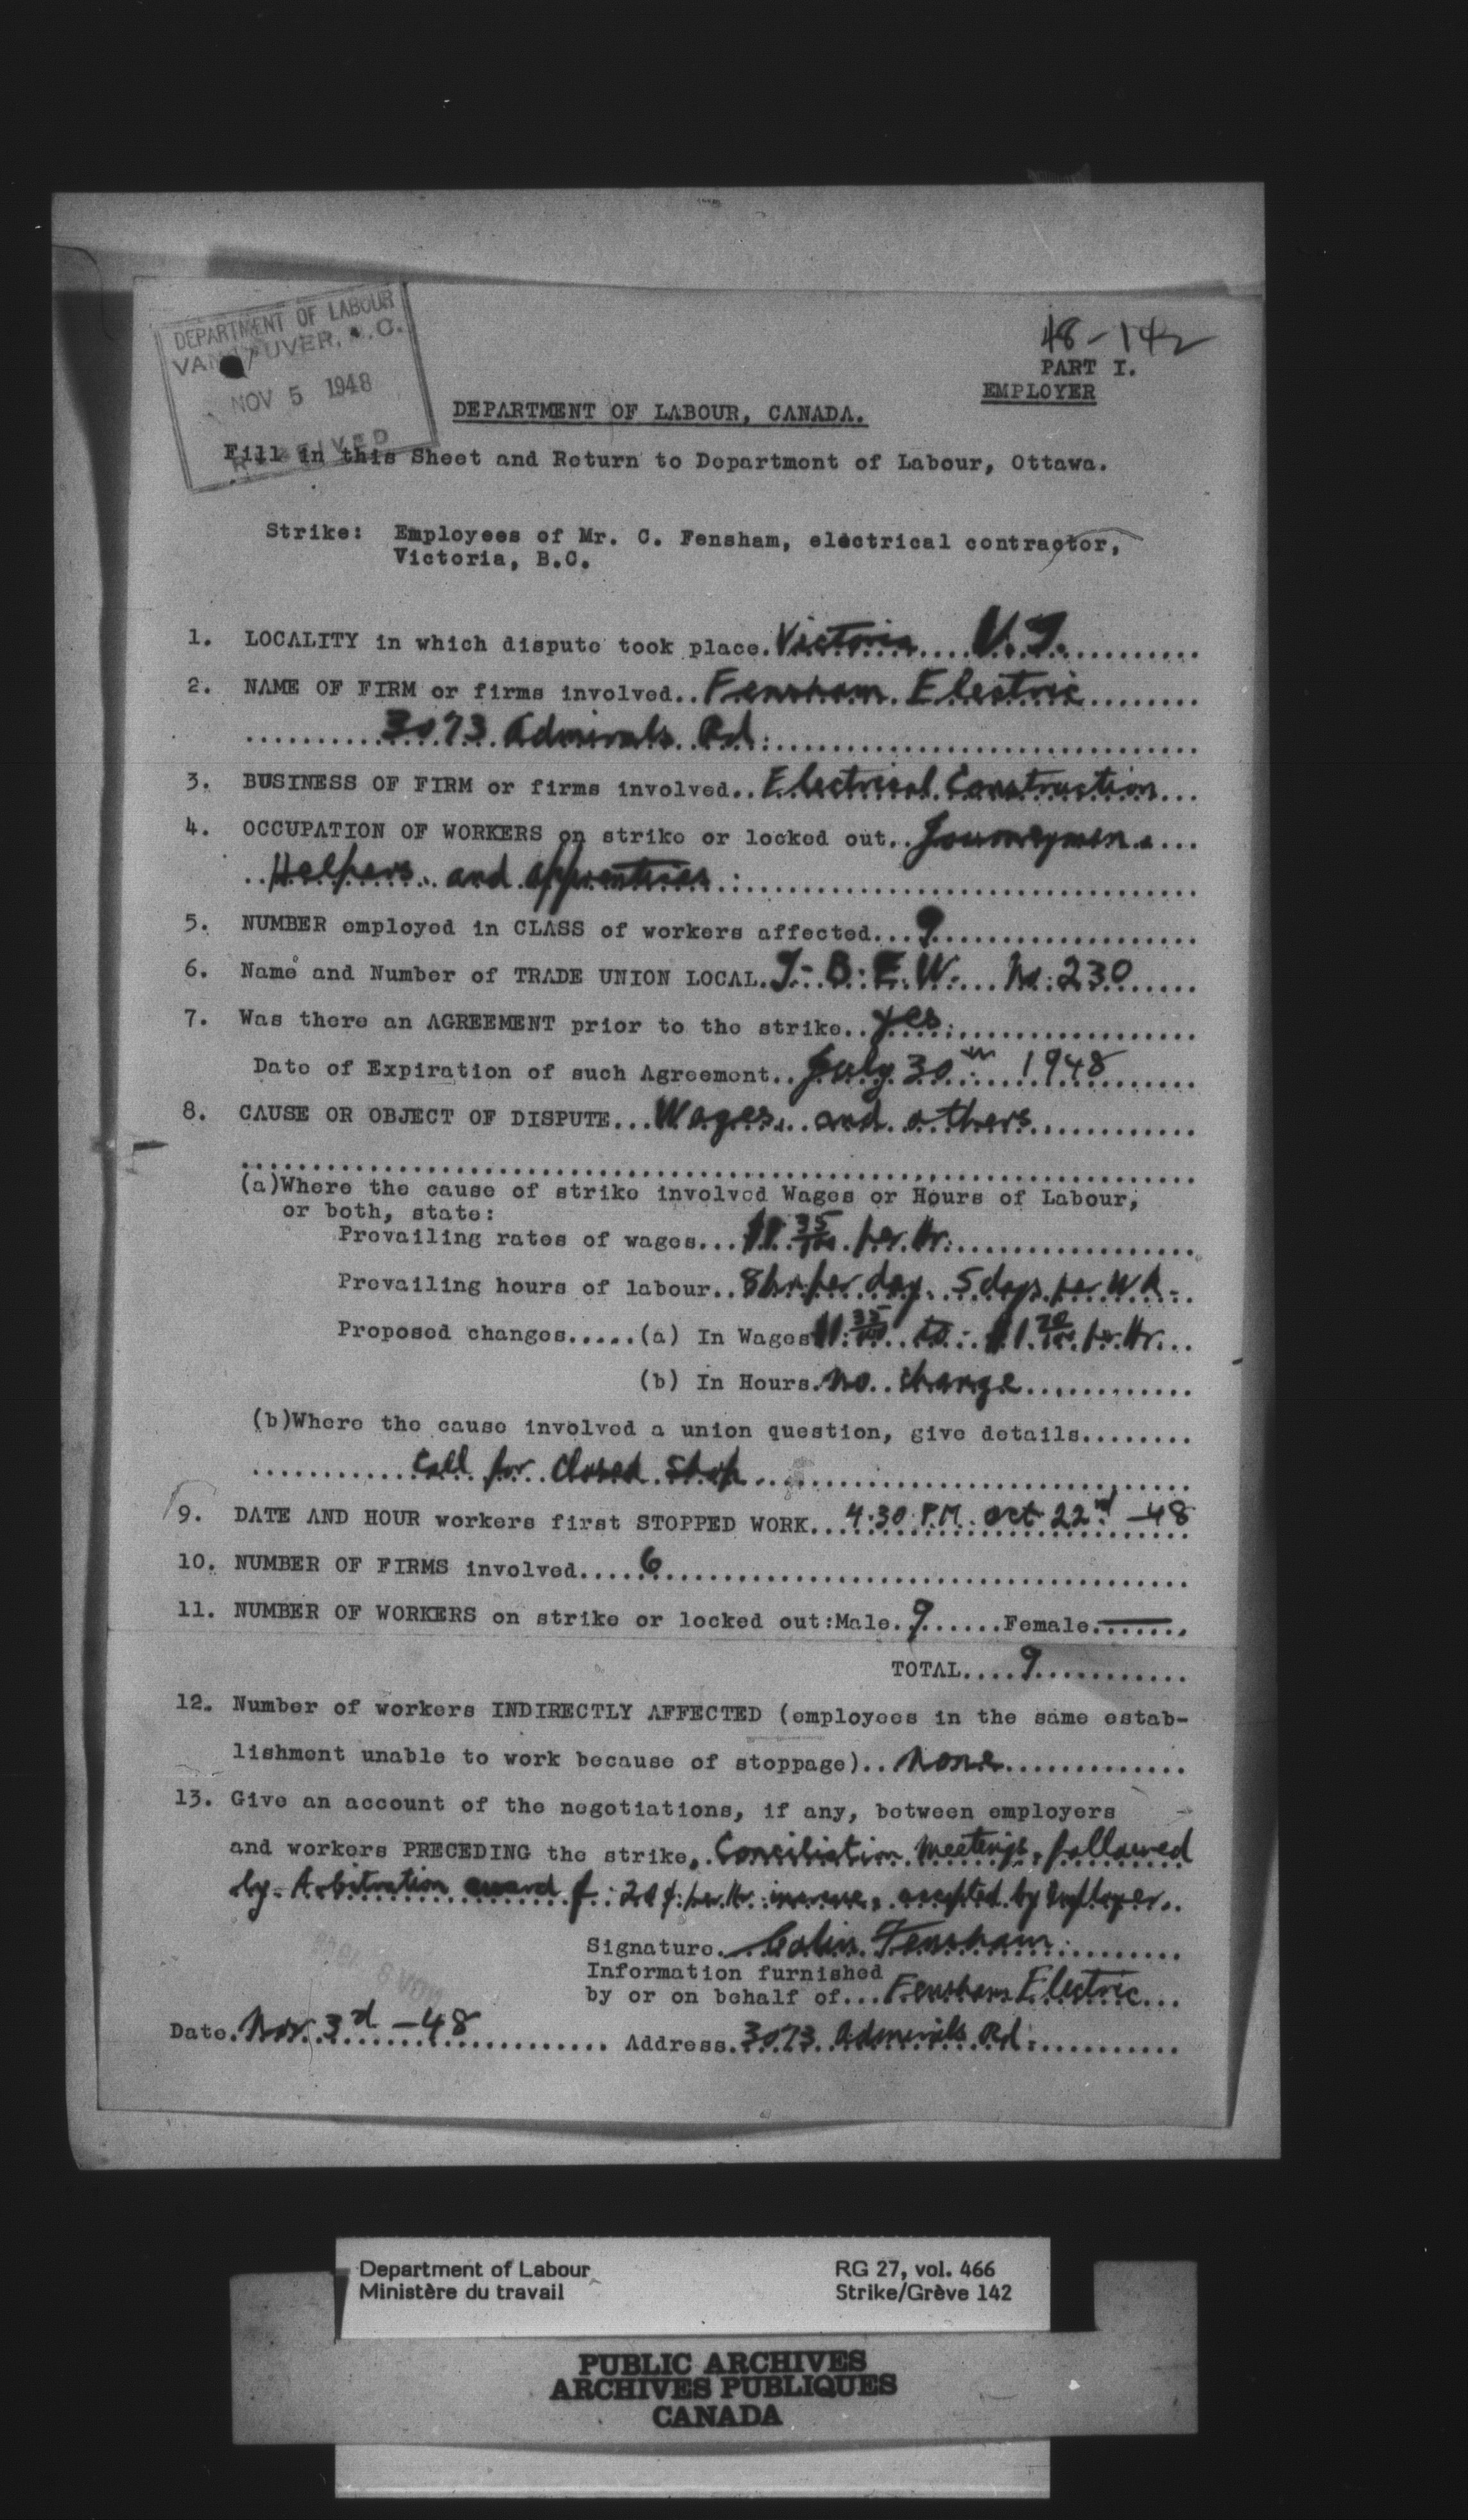 DEPARTMENT OF LABOUR
VANCOUVER, B.C.
NOV 5 1948
RECEIVED
48-142
PART I.
EMPLOYER
DEPARTMENT OF LABOUR, CANADA.
Fill in this Sheet and Return to Department of Labour, Ottawa.
Strike: Employees of Mr. C. Fensham, electrical contractor,
Victoria, B.C.
1. LOCALITY in which dispute took place. Victoria V.I.
2. NAME OF FIRM or firms involved.. Fensham Electric
3073 Admirals Rd.
3. BUSINESS OF FIRM or firms involved.. Electrical Construction
4. OCCUPATION OF WORKERS on strike or locked out.. Journeymen
Helpers and apprentices
5. NUMBER employed in CLASS of workers affected... 9
6. Name and Number of TRADE UNION LOCAL. I.B.E.W. No. 230
7. Was there an AGREEMENT prior to the strike.. yes
Date of Expiration of such Agreement.. July 30th 1948
8. CAUSE OR OBJECT OF DISPUTE... Wages and others
(a) Where the cause of strike involved Wages or Hours of Labour,
or both, state:
Prevailing rates of wages... $1 35/100 per Hr.
Prevailing hours of labour.. 8 hr per day 5 days per Wk.
Proposed changes.....(a) In Wages $1.35/100 to $1.70/100 per Hr.
(b) In Hours. no change
(b) Where the cause involved a union question, give details........
Call for Closed Shop
9. DATE AND HOUR workers first STOPPED WORK... 4.30 P.M. Oct 22nd -48
10. NUMBER OF FIRMS involved..... 6
11. NUMBER OF WORKERS on strike or locked out: Male. 9 ......Female. —
TOTAL.... 9
12. Number of workers INDIRECTLY AFFECTED (employees in the same estab-
lishment unable to work because of stoppage).. none
13. Give an account of the negotiations, if any, between employers
and workers PRECEDING the strike. Conciliation meetings, followed
by Arbitration award of 20¢ per Hr. increase, accepted by Employer.
Signature. Colin Fensham
Information furnished
by or on behalf of... Fensham Electric
Date. Nov. 3d -48 Address. 3073 Admirals Rd.
Department of Labour
Ministère du travail
RG 27, vol. 466
Strike/Grève 142
PUBLIC ARCHIVES
ARCHIVES PUBLIQUES
CANADA